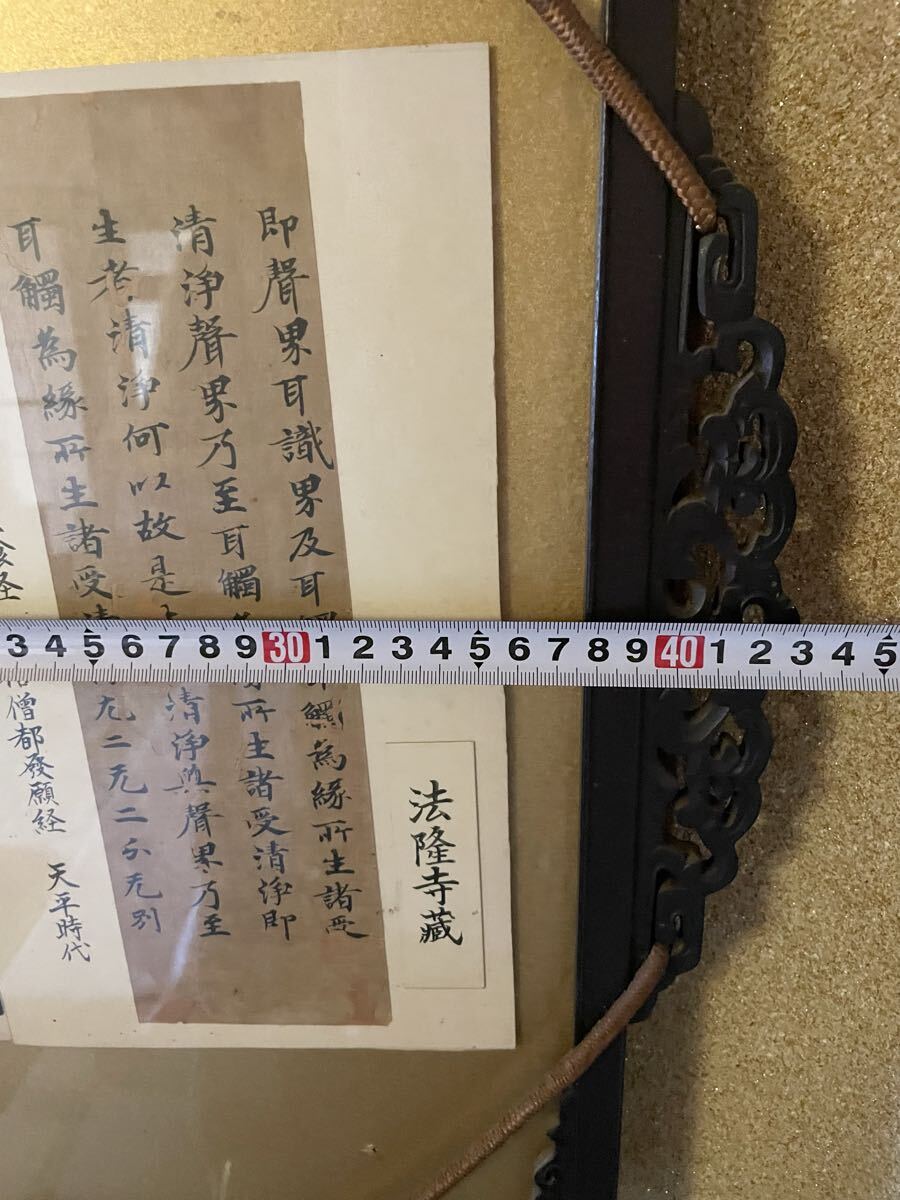 即聲界耳識界及耳觸 觸為緣所生諸受
清淨聲界乃至耳觸 所生諸受清淨即
生者清淨何以故是 清淨與聲界乃至
耳觸為緣所生諸受清 无二无二分无別
法隆寺藏
経
僧都發願経 天平時代
3 4 5 6 7 8 9 30 1 2 3 4 5 6 7 8 9 40 1 2 3 4 5